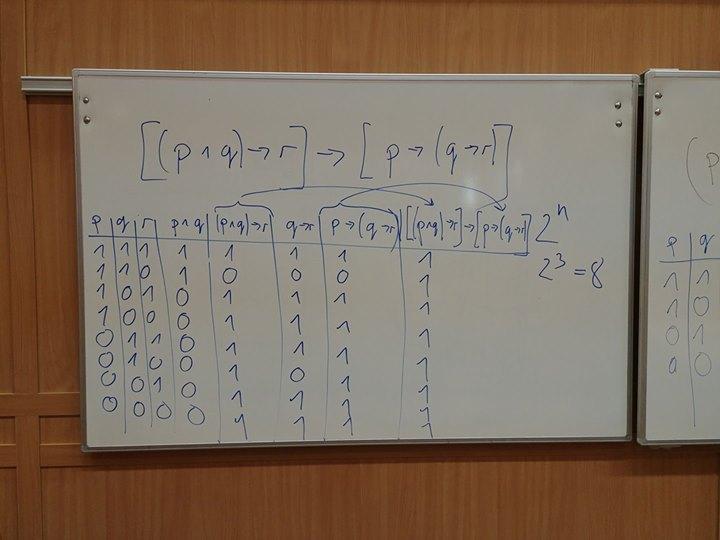 [(p ∧ q) → r] → [p → (q → r)]
p q r p ∧ q (p∧q)→r q→r p→(q→r) [(p∧q)→r]→[p→(q→r)] 2ⁿ
1 1 1 1 1 1 1 1 2³ = 8
1 1 0 1 0 0 0 1
1 0 1 0 1 1 1 1
1 0 0 0 1 1 1 1
0 1 1 0 1 1 1 1
0 1 0 0 1 0 1 1
0 0 1 0 1 1 1 1
0 0 0 0 1 1 1 1
(p
p q
1 1
1 0
0 1
0 0